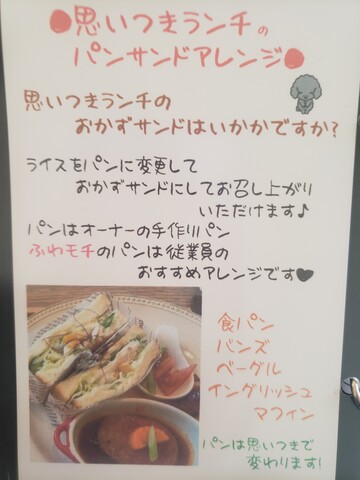 ●思いつきランチの
パンサンドアレンジ●
思いつきランチの
おかずサンドはいかがですか?
ライスをパンに変更して
おかずサンドにしてお召し上がり
いただけます♪
パンはオーナーの手作りパン
ふわモチのパンは従業員の
おすすめアレンジです♥
食パン
バンズ
ベーグル
イングリッシュ
マフィン
パンは思いつきで
変わります!